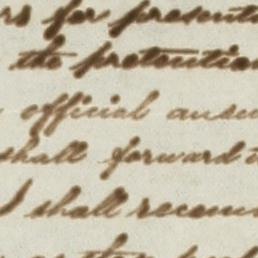 rs for presente
the pretention
official answe
shall forward t
I shall recom